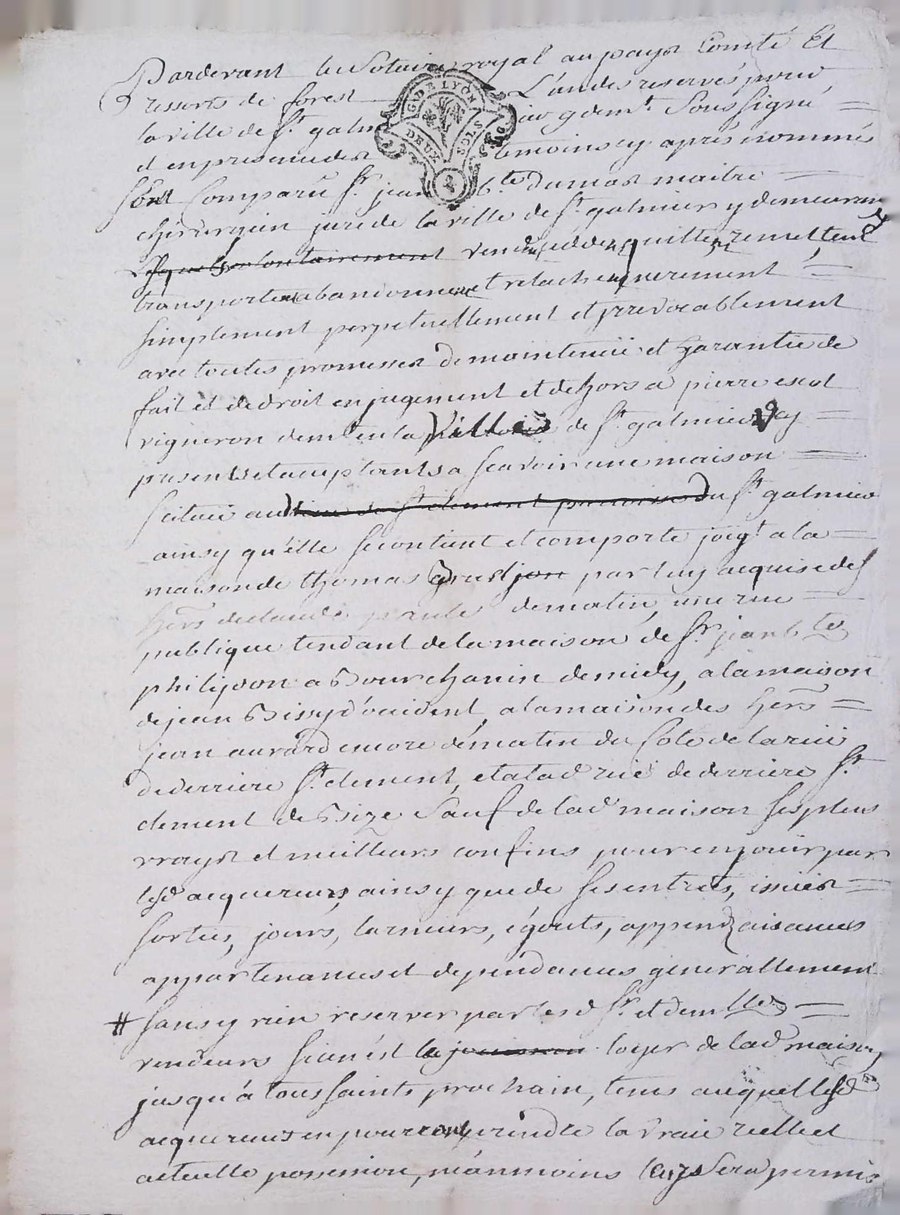 Pardevant le Notaire royal au pays Comté Et
ressorts de forest Landes reservés pour
la ville de St. galm
et en presence des temoins cy après nommés
sont Comparu Sr. jean bte dumas maitre
chirurgien juré de la ville de St. galmier y demeurant
volontairement vend cedde quitte remet
transporte abandonne et relache purement
simplement perpetuellement et jrrevocablement
avec toutes promesses de maintenüe et garantie de
fait et de droit en jugement et dehors a pierre escot
vigneron demt. en la Ville de St. galmier cy
presents et acceptants a scavoir une maison
scituée au St. clement parroisse du St. galmier
ainsy qu'elle se contient et comporte joigt. a la
maison de thomas par luy acquise des
hers. de claude de matin, une rue
publique tendant de la maison de Sr. jean bte
philipon a Bourchanin de midy, a la maison
de jean Bissy d'occident, a la maison des hers.
jean aurard encore de matin du Coté de la rüe
de derriere St. clement, et a lad rüe de derriere St.
clement de Bize Sauf de lad maison ses plus
vrays et meilleurs confins, pour en jouir par
lesd acquereurs, ainsy que de ses entrées, issües
sorties, jours, larmiers, égouts, append aisances
appartenances et dépendances generallement
# sans y rien reserver par lesd Sr. et demlle
vendeurs si ce n'est loyer de lad maison
jusqu'á toussaints prochain, tems auquel lesd
acquereurs en pourront prendre la vraie reelle et
actuelle possession, néanmoins Sera permis